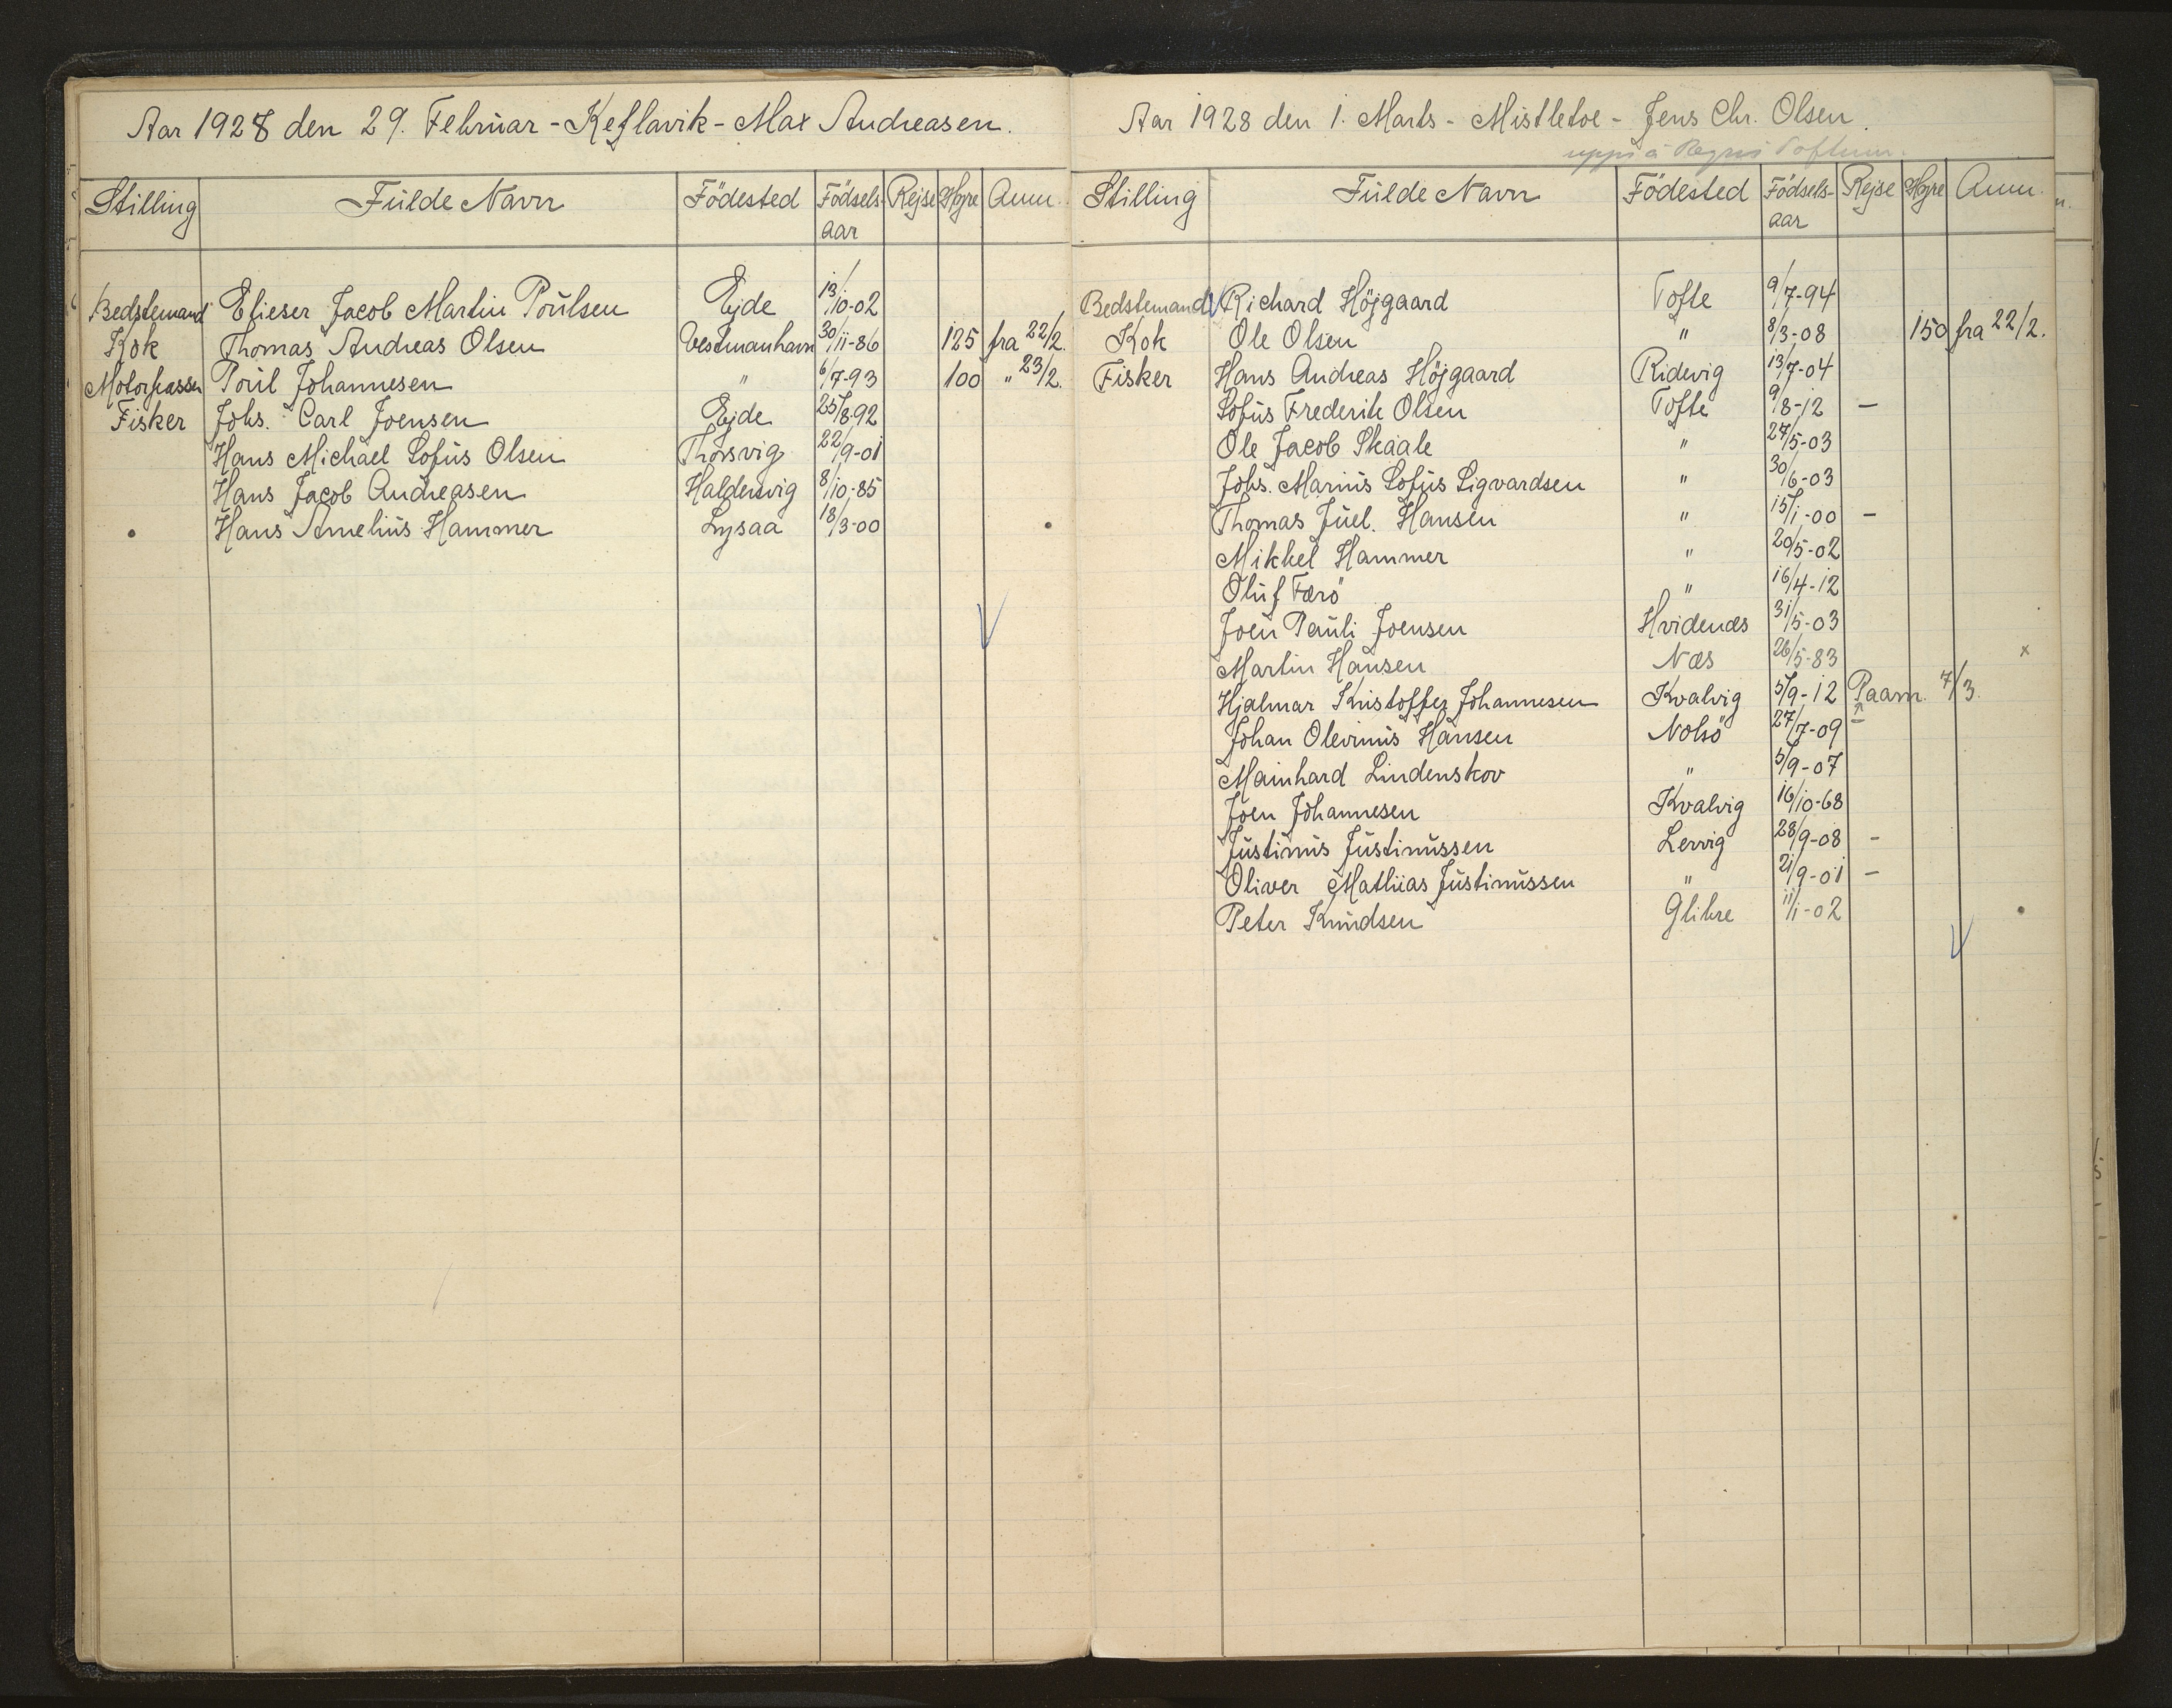 Aar 1928 den 29. Februar - Keflavik - Max Andreasen.
Stilling Fulde Navn Födested Födsels-aar Rejse Hyre Anm.
Bedstemand Elieser Jacob Martin Poulsen Ejde 13/10-02
Kok Thomas Andreas Olsen Vestmanhavn 30/11-86 125 fra 22/2.
Motorpasser Poul Johannesen " 6/7-93 100 " 23/2.
Fisker Johs. Carl Joensen Ejde 25/8-92
Hans Michael Sofus Olsen Thorsvig 22/9-01
Hans Jacob Andreasen Haldersvig 8/10-85
Hans Amelius Hammer Lysaa 18/3-00
Aar 1928 den 1. Marts - Mistletoe - Jens Chr. Olsen.
uppi á Toftum.
Stilling Fulde Navn Födested Födsels-aar Rejse Hyre Anm.
Bedstemand Richard Höjgaard Tofte 9/7-94
Kok Ole Olsen " 8/3-08 150 fra 22/2.
Fisker Hans Andreas Höjgaard Ridevig 13/7-04
Sofus Frederik Olsen Tofte 9/8-12 –
Ole Jacob Skaale " 27/5-03
Johs. Marius Sofus Sigvardsen " 30/6-03
Thomas Juel. Hansen " 15/1-00 –
Mikkel Hammer " 20/5-02
Oluf Færö " 16/4-12
Joen Pauli Joensen Hvidenæs 31/5-03
Martin Hansen Næs 26/5-83 x
Hjalmar Kristoffer Johannesen Kvalvig 5/9-12 Paam. 7/3.
Johan Olevinus Hansen Nolsö 27/7-09 –
Mainhard Lindenskov " 5/9-07
Joen Johannesen Kvalvig 16/10-68
Justinus Justinussen Lervig 28/9-08 –
Oliver Mathias Justinussen " 21/9-01 –
Peter Knudsen Glibre 11/1-02